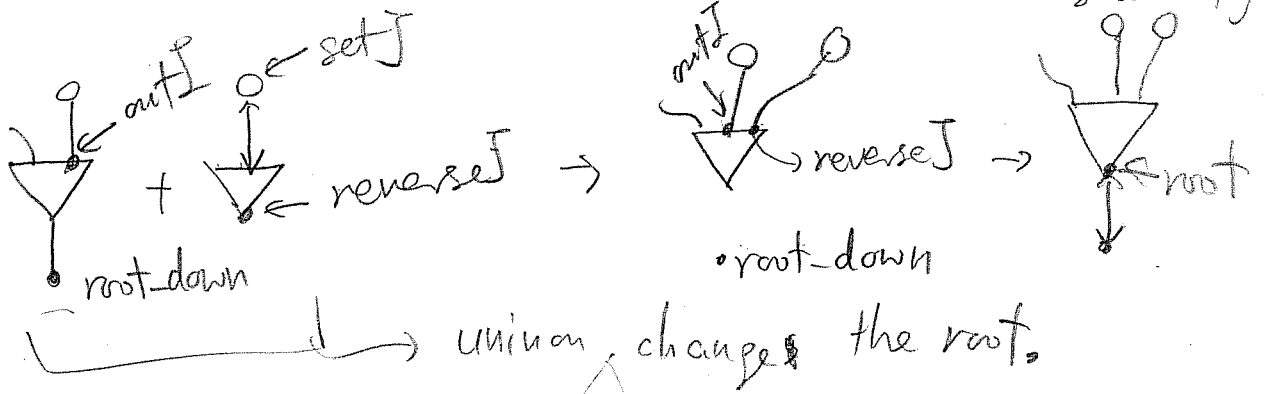 outI
setJ
reverseJ
root_down
outI
reverseJ
root_down
root
uninon, changes the root.